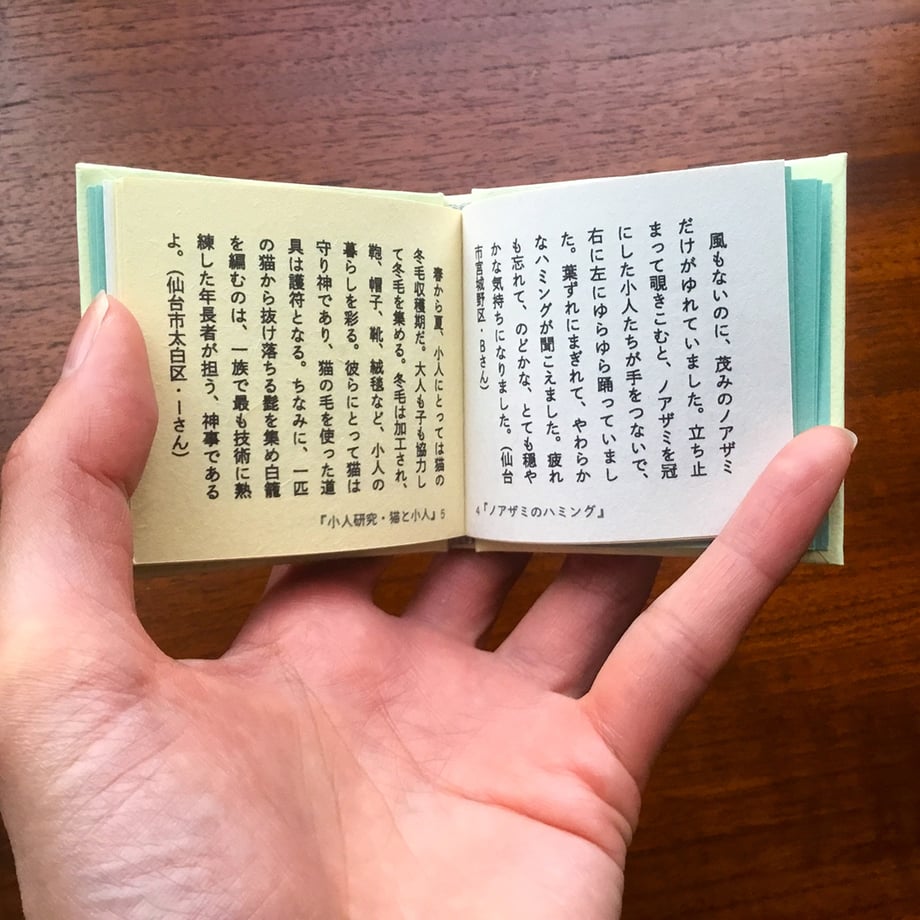 風もないのに、茂みのノアザミ
だけがゆれていました。立ち止
まって覗きこむと、ノアザミを冠
にした小人たちが手をつないで、
右に左にゆらゆら踊っていまし
た。葉ずれにまぎれて、やわらか
なハミングが聞こえました。疲れ
も忘れて、のどかな、とても穏や
かな気持ちになりました。（仙台
市宮城野区・Bさん）
4『ノアザミのハミング』
春から夏、小人にとっては猫の
冬毛収穫期だ。大人も子も協力し
て冬毛を集める。冬毛は加工され、
鞄、帽子、靴、絨毯など、小人の
暮らしを彩る。彼らにとって猫は
守り神であり、猫の毛を使った道
具は護符となる。ちなみに、一匹
の猫から抜け落ちる髭を集め白籠
を編むのは、一族で最も技術に熟
練した年長者が担う、神事である
よ。（仙台市太白区・Iさん）
『小人研究・猫と小人』5